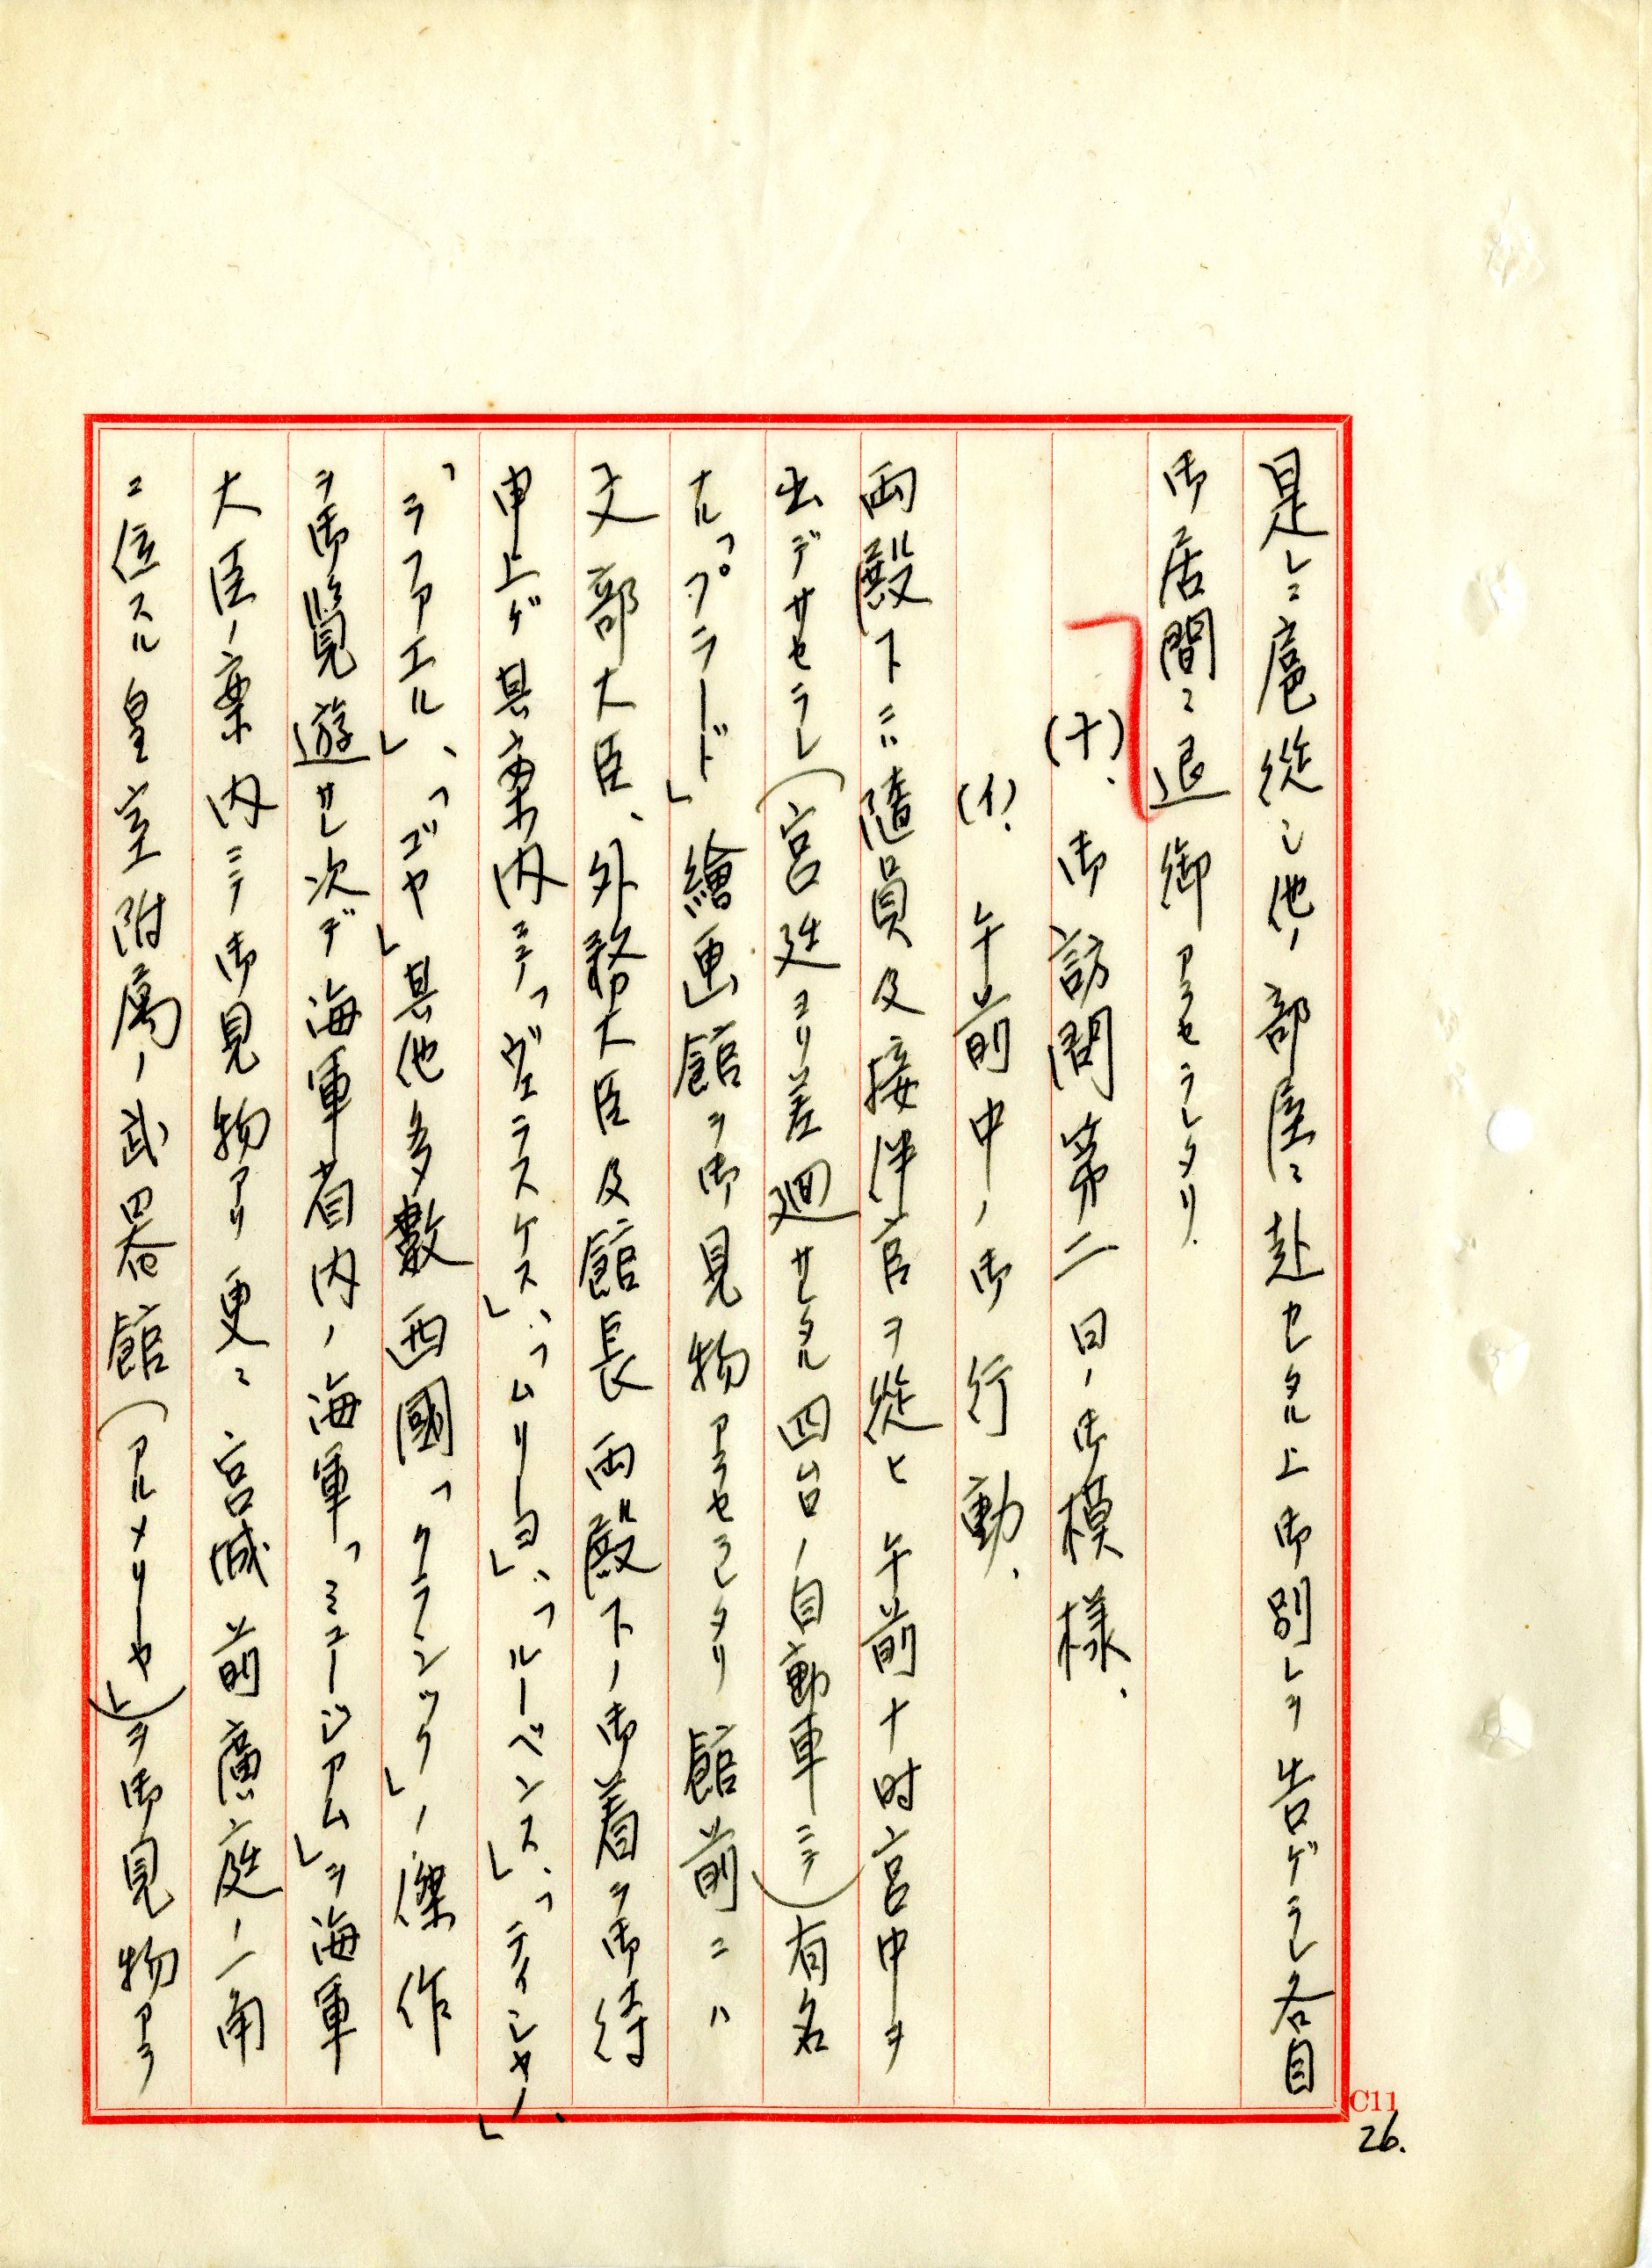 是レニ扈從シ他ノ部屋ニ赴セレタル上御別レヲ告ゲラレ各自
御居間ニ退御アラセラレタリ.
(十). 御訪問第二日ノ御模様.
(イ). 午前中ノ御行動.
両殿下ニハ隨員及接伴官ヲ從ヒ午前十時宮中ヲ
出デサセラレ(宮廷ヨリ差廻サレタル四台ノ自動車ニテ)有名
ナル「プラード」繪画館ヲ御見物アラセラレタリ館前ニハ
文部大臣、外務大臣及館長両殿下ノ御着ヲ御待
申上ゲ其案内ニテ「ヴェラスケス」、「ムリーヨ」、「ルーベンス」、「ティシヤノ」、
「ラファエル」、「ゴヤ」其他多數西國「クラシック」ノ傑作
ヲ御覧遊サレ次デ海軍省内ノ海軍「ミュージアム」ヲ海軍
大臣ノ案内ニテ御見物アリ更ニ宮城前廣庭ノ一角
ニ位スル皇室附属ノ武器館(アルメリーヤ」)ヲ御見物アラ
C11
26.